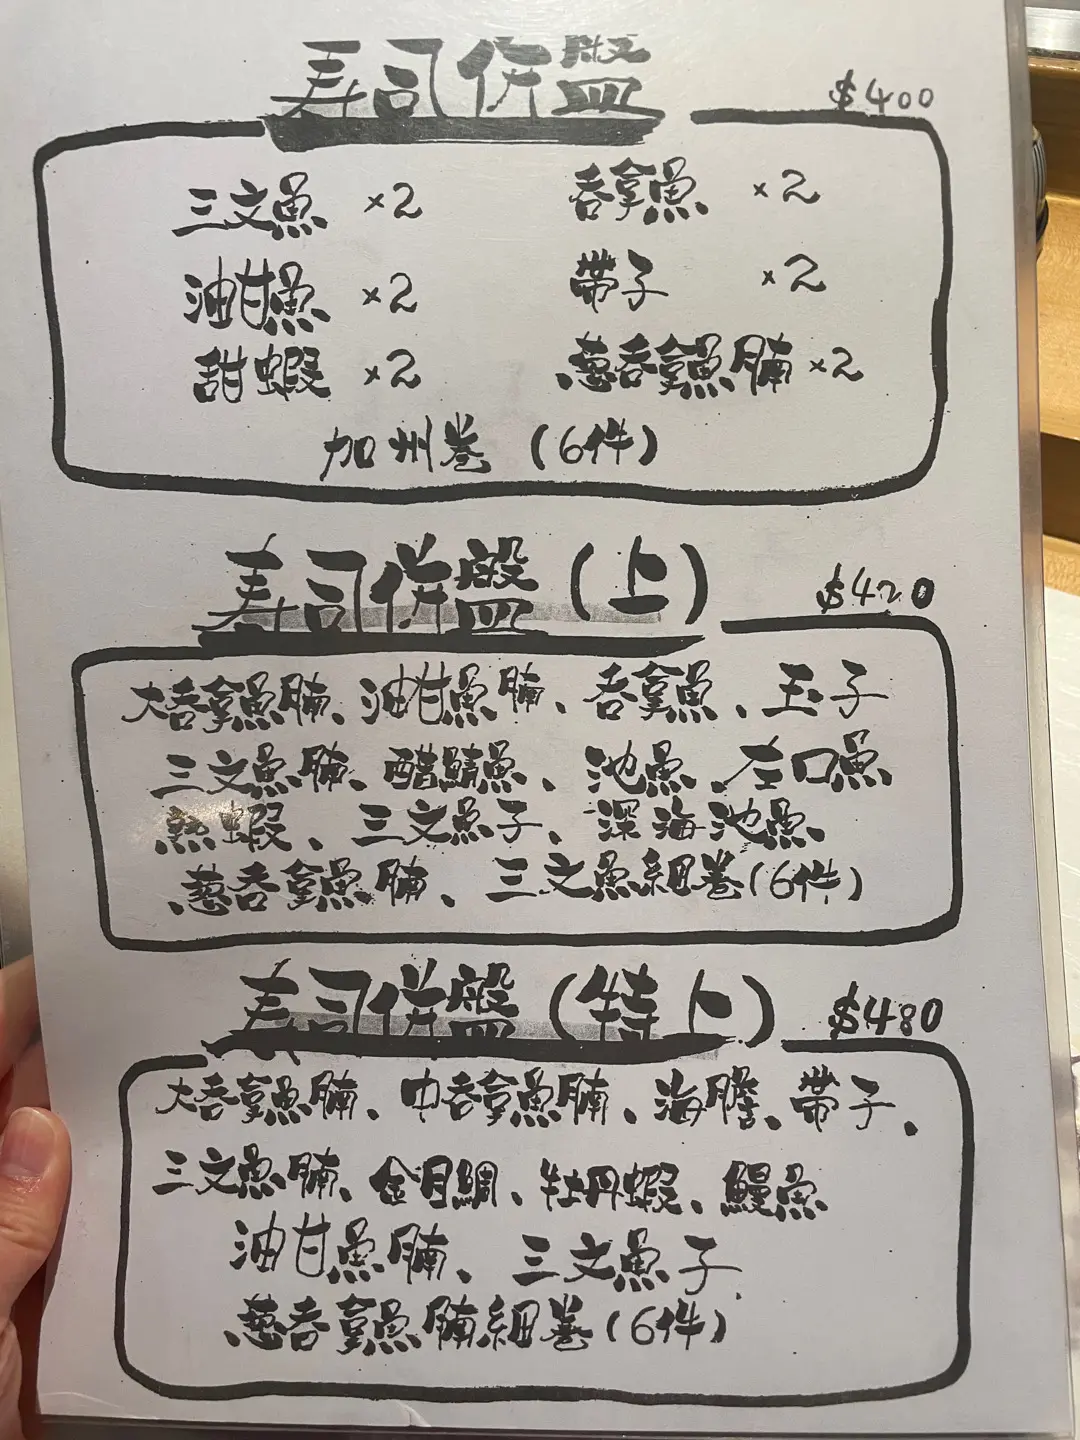 寿司併盤 $400
三文魚 ×2 吞拿魚 ×2
油甘魚 ×2 帶子 ×2
甜蝦 ×2 葱吞拿魚腩 ×2
加州卷 (6件)
寿司併盤(上) $420
大吞拿魚腩、油甘魚腩、吞拿魚、玉子
三文魚腩、醋鯖魚、池魚、左口魚
熟蝦、三文魚子、深海池魚、
葱吞拿魚腩、三文魚細卷(6件)
寿司併盤(特上) $480
大吞拿魚腩、中吞拿魚腩、海膽、帶子、
三文魚腩、金目鯛、牡丹蝦、鰻魚
油甘魚腩、三文魚子
葱吞拿魚腩細卷(6件)